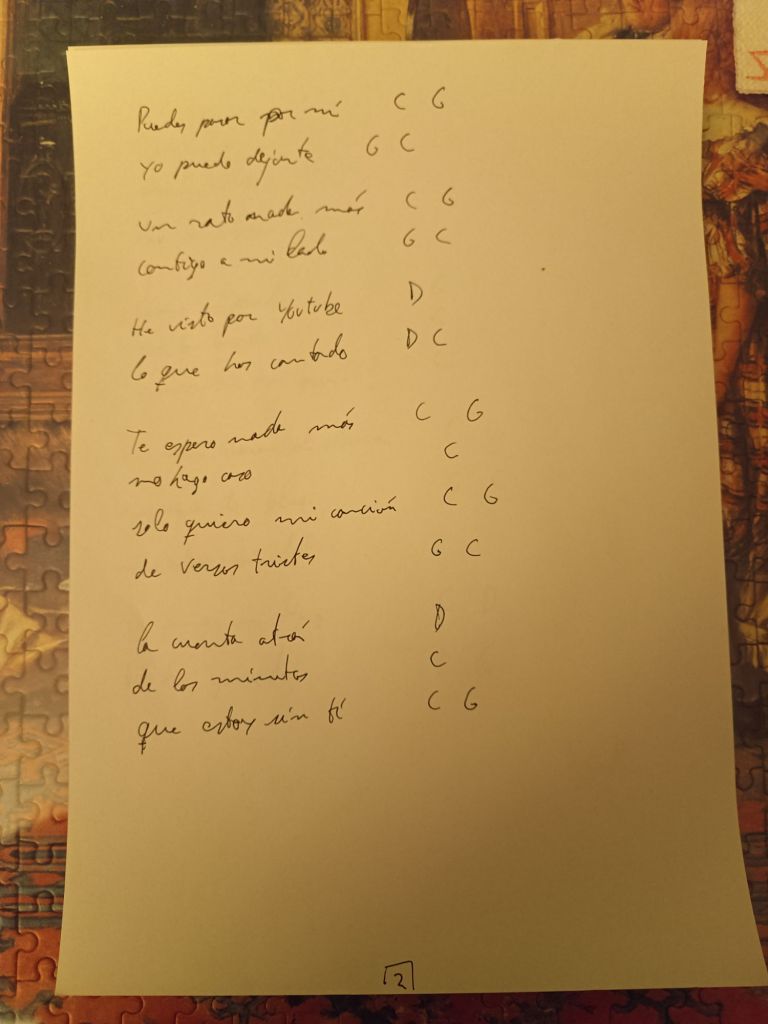 Puedes pasar por mí C G
Yo puedo dejarte G C
un rato nada más C G
contigo a mi lado G C
He visto por Youtube D
lo que has cantado D C
Te espero nada más C G
no hago caso C
solo quiero mi canción C G
de versos tristes G C
la cuenta atrás D
de los minutos C
que estoy sin ti C G
2